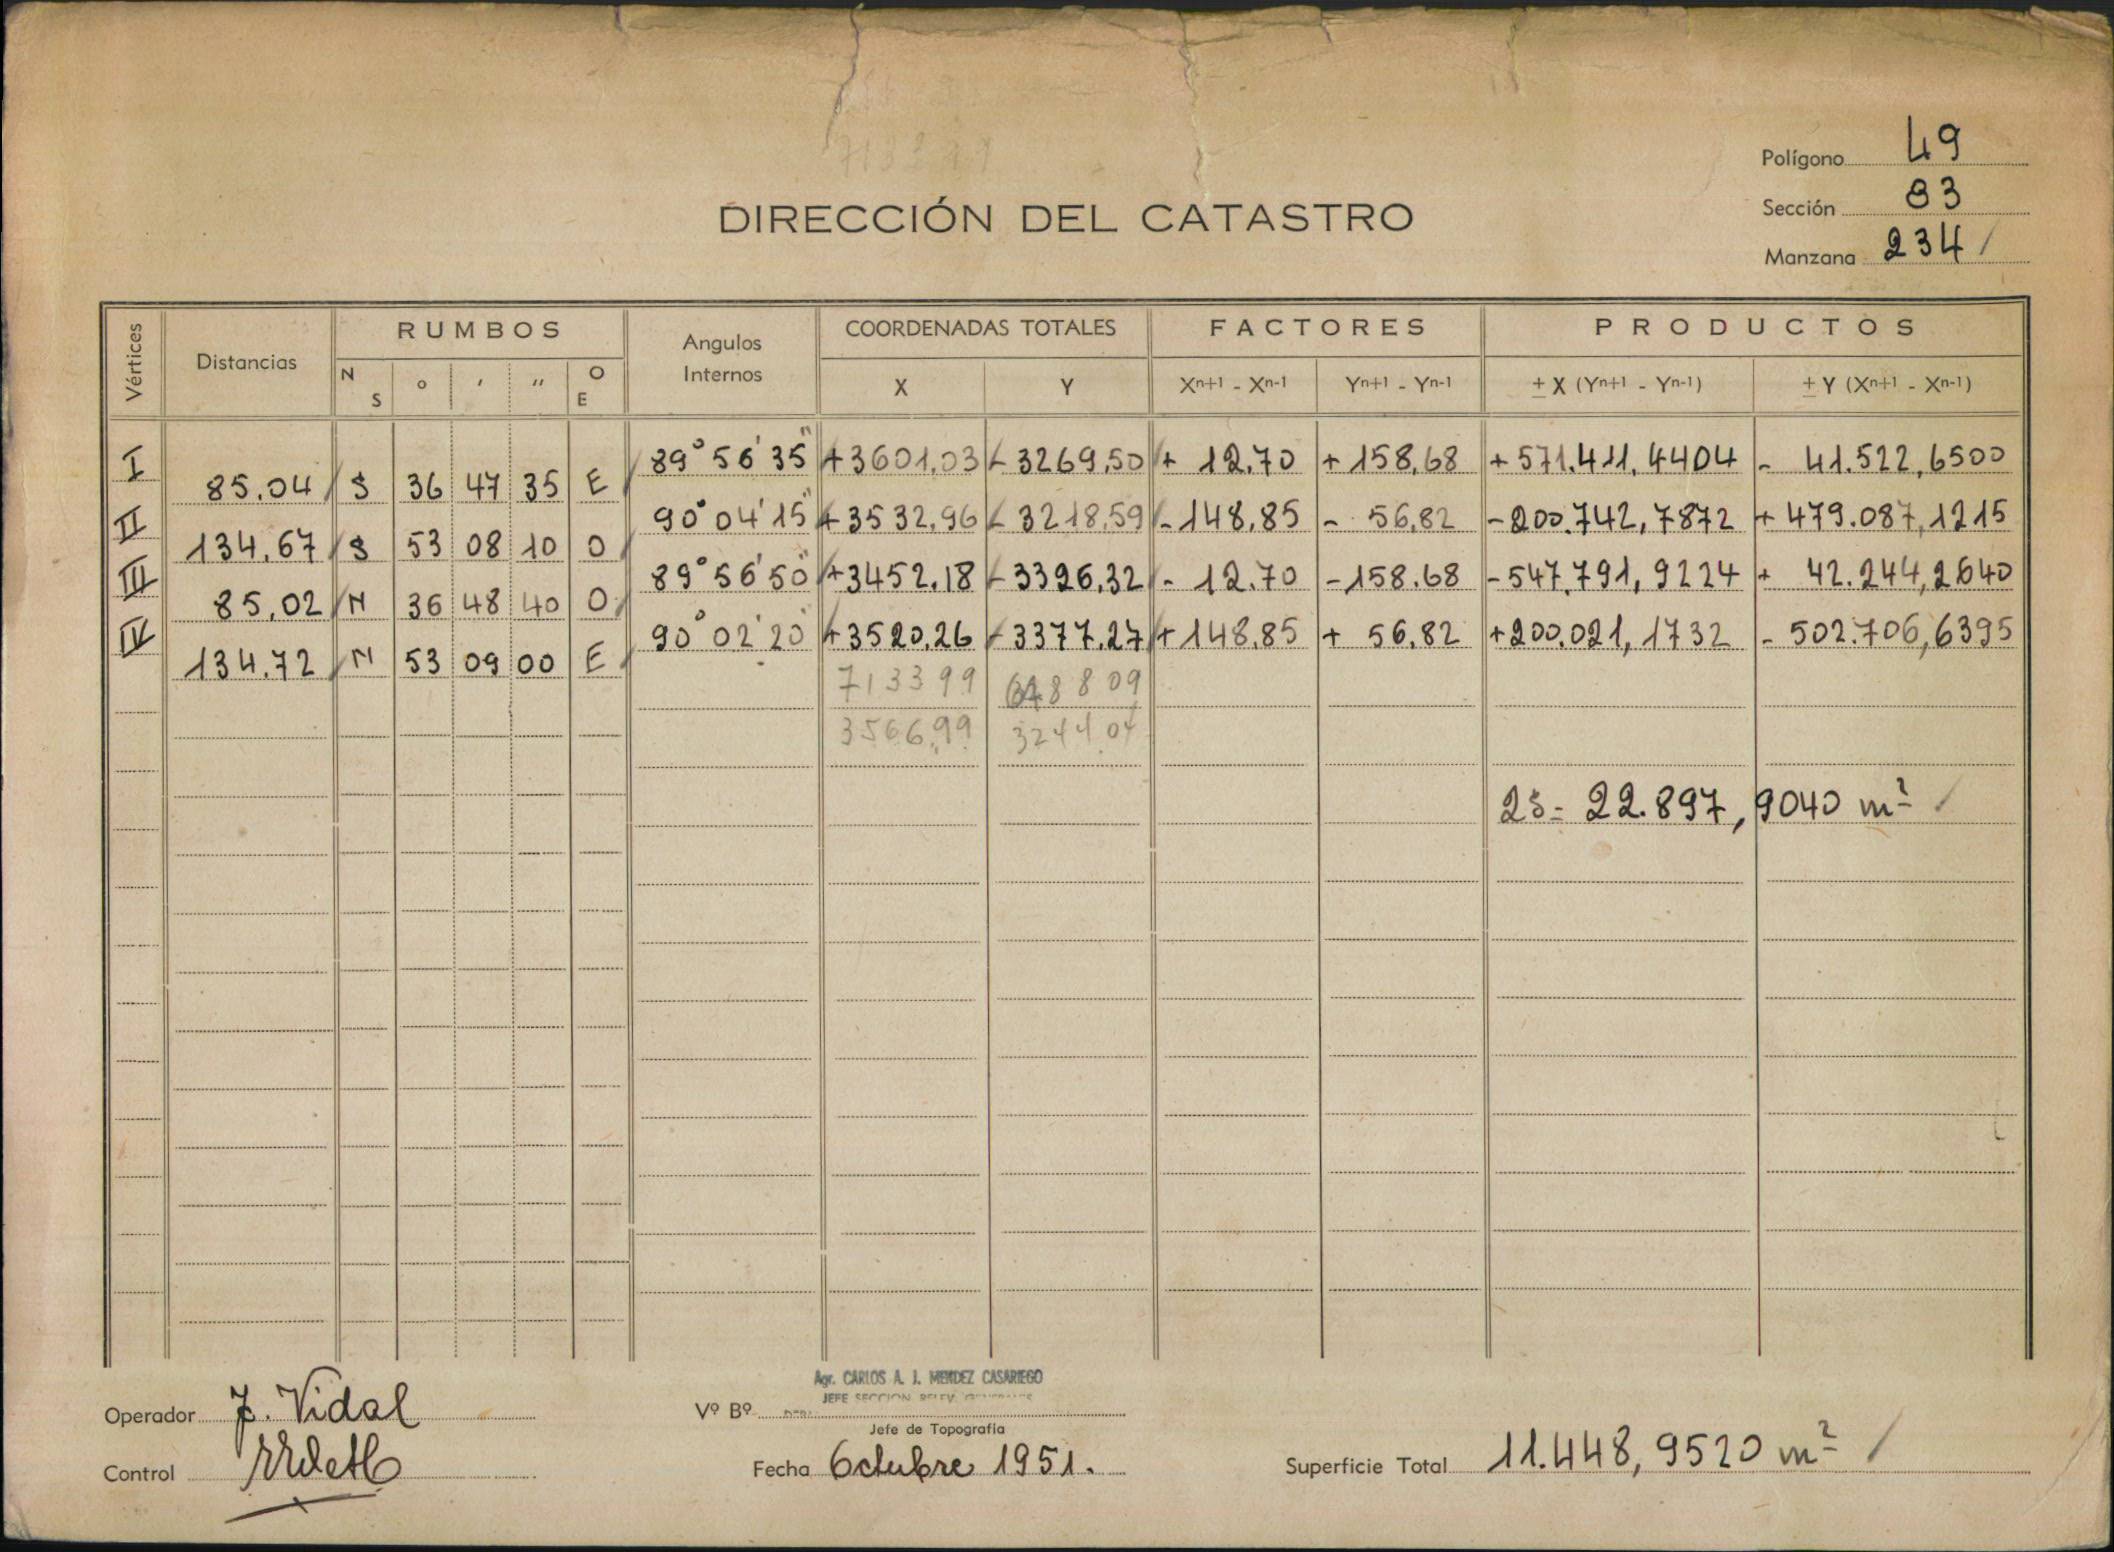 Polígono 49
DIRECCIÓN DEL CATASTRO
Sección 83
Manzana 234 /
Vértices Distancias RUMBOS Angulos Internos COORDENADAS TOTALES FACTORES PRODUCTOS
N S ° ′ ″ O E X Y Xn+1 - Xn-1 Yn+1 - Yn-1 ± X (Yn+1 - Yn-1) ± Y (Xn+1 - Xn-1)
I 89° 56' 35" +3601,03 - 3269,50 + 12.70 + 158,68 +571.411,4404 - 41.522,6500
85.04 S 36 47 35 E
II 90° 04' 15" +3532,96 - 3218,59 -148,85 - 56,82 -200.742,7872 + 479.087,1215
134,67 S 53 08 10 O
III 89° 56' 50" +3452.18 - 3326,32 - 12.70 -158.68 -547.791,9224 + 42.244,2640
85,02 N 36 48 40 O
IV 90° 02' 20" +3520,26 - 3377,27 +148,85 + 56,82 +200.021,1732 - 502.706,6395
134.72 N 53 09 00 E
713399 648809
3566,99 3244.04
2S= 22.897,9040 m² /
Agr. CARLOS A. J. MENDEZ CASARIEGO
JEFE SECCION RELEV. GENERALES
Operador J. Vidal Vº Bº
Jefe de Topografía
Control Fecha Octubre 1951. Superficie Total 11.448,9520 m² /